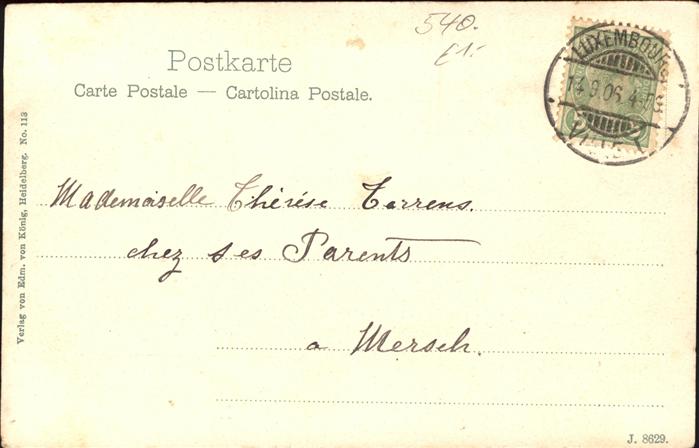 540.
Postkarte
Carte Postale — Cartolina Postale.
LUXEMBOURG
14.9.06. 4-5
VILLE
Mademoiselle Thérése Terrens.
chez ses Parents
a Mersch.
Verlag von Edm. von König, Heidelberg. No. 113
J. 8629.